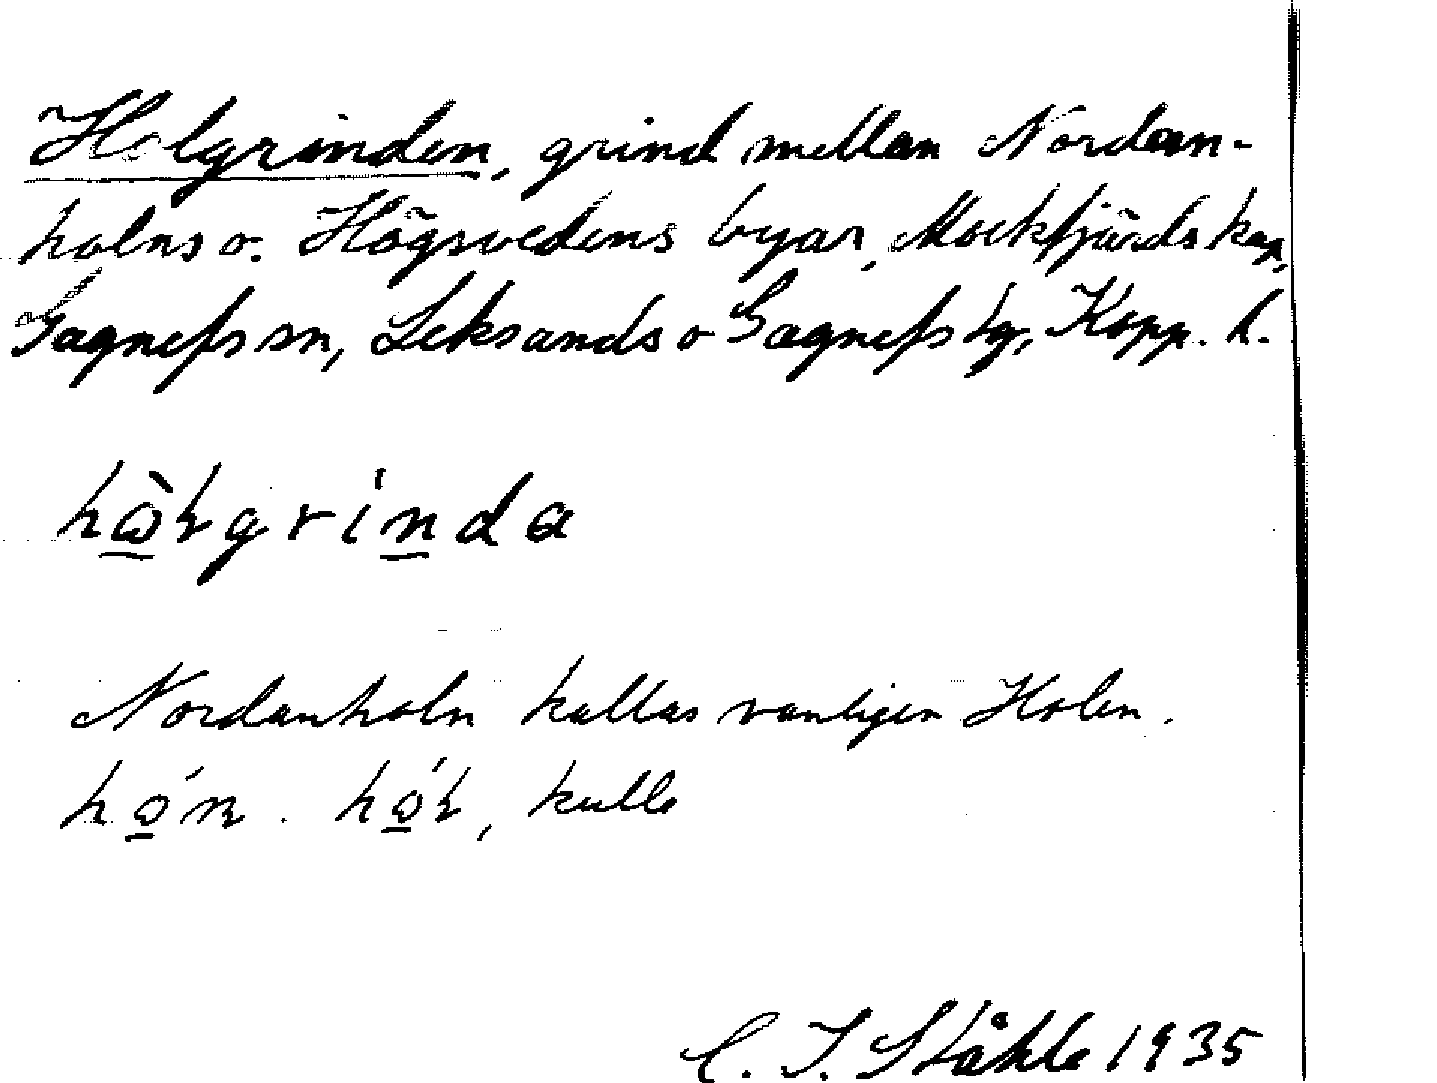 Holgrinden, grind mellan Nordan-
holns o. Högsvedens byar, Mockfjärds kap,
Gagnefs sn, Leksands o Gagnefs tg, Kopp. l.
hὼ̲ɫgrin̲da
Nordanholn kallas vanligen Holen.
hώ̲n . hώ̲ɫ, kulle
C. I. Ståhle 1935